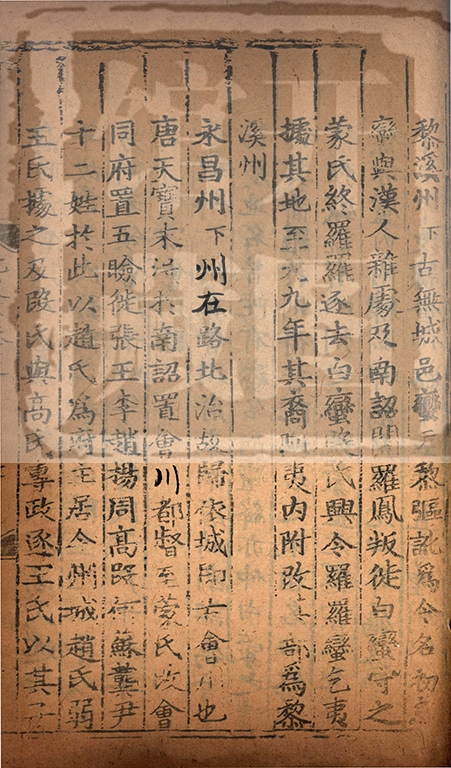 黎溪州下古無城邑蠻云黎彄訛爲今名初烏
蠻與漢人雜處及南詔閤羅鳳叛徙白蠻守之
蒙氏終羅羅逐去白蠻段氏興令羅羅蠻乞夷
據其地至元九年其裔阿夷内附改其部爲黎
溪州
永昌州下州在路北治故歸依城即古會川也
唐天寶末沒於南詔置會川都督至蒙氏改會
同府置五瞼徙張王李趙楊周高段何蘇龔尹
十二姓於此以趙氏爲府主居今州城趙氏弱
王氏據之及段氏與高氏專政逐王氏以其子